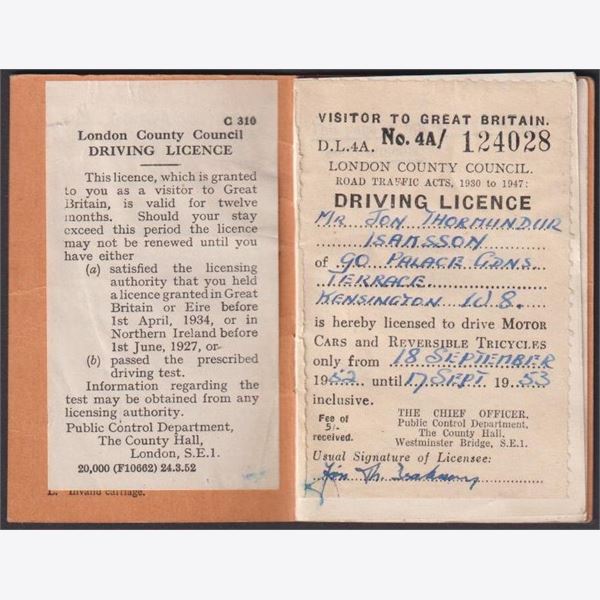 C 310
London County Council
DRIVING LICENCE
This licence, which is granted
to you as a visitor to Great
Britain, is valid for twelve
months. Should your stay
exceed this period the licence
may not be renewed until you
have either
(a) satisfied the licensing
authority that you held
a licence granted in Great
Britain or Eire before
1st April, 1934, or in
Northern Ireland before
1st June, 1927, or
(b) passed the prescribed
driving test.
Information regarding the
test may be obtained from any
licensing authority.
Public Control Department,
The County Hall,
London, S.E.1.
20,000 (F10662) 24.3.52
L. Invalid carriage.
VISITOR TO GREAT BRITAIN.
D.L.4A. No. 4A/ 124028
LONDON COUNTY COUNCIL.
ROAD TRAFFIC ACTS, 1930 to 1947:
DRIVING LICENCE
MR JON THORMUNDUR
ISAKSSON
of 90 PALACE GDNS.
TERRACE
KENSINGTON W8.
is hereby licensed to drive MOTOR
CARS and REVERSIBLE TRICYCLES
only from 18 SEPTEMBER
1952 until 17 SEPT. 1953
inclusive.
Fee of
5/-
received.
THE CHIEF OFFICER,
Public Control Department,
The County Hall,
Westminster Bridge, S.E.1.
Usual Signature of Licensee:
Jón Th.